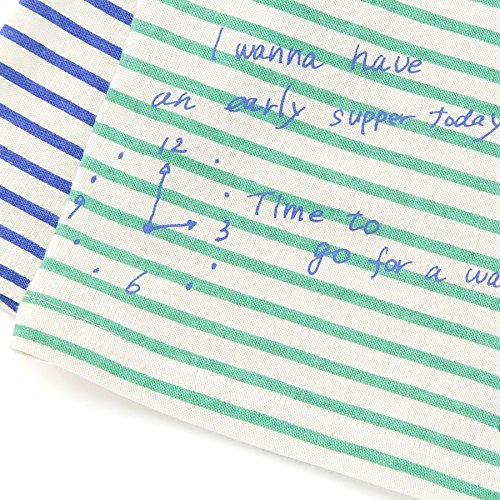 I wanna have
an early supper today
12
9
3
6
Time to
go for a wa